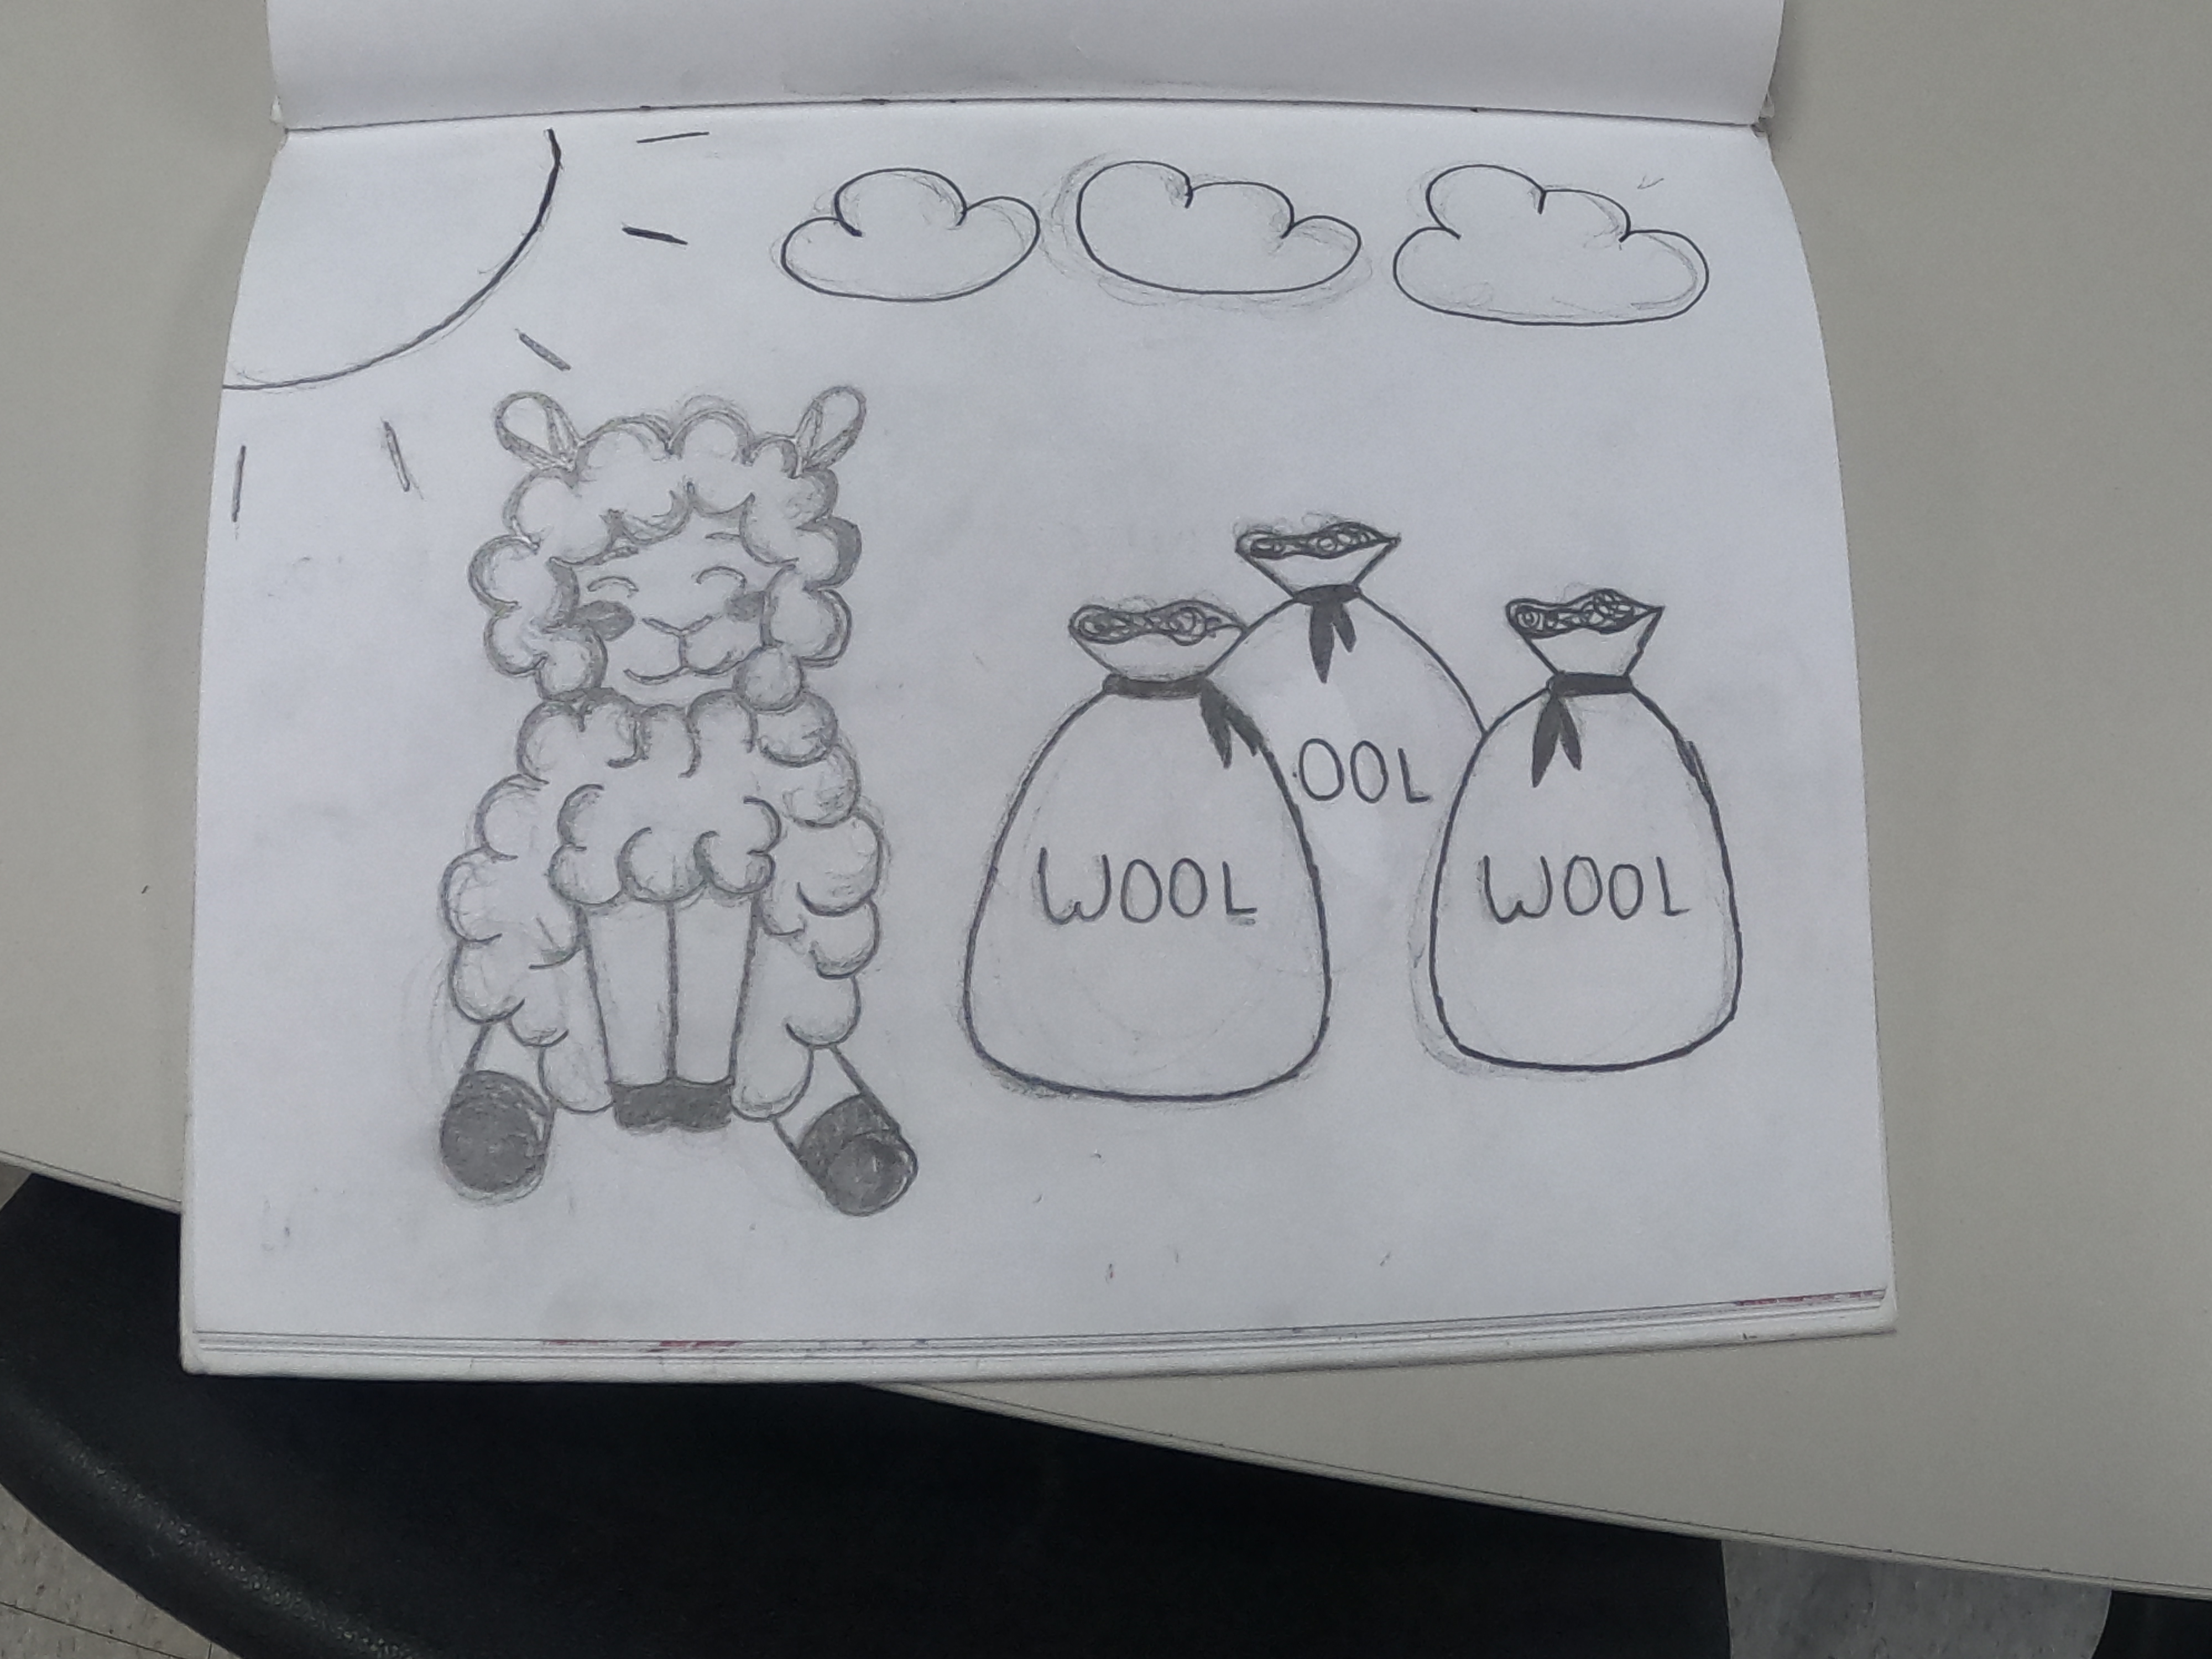 OOL
WOOL
WOOL